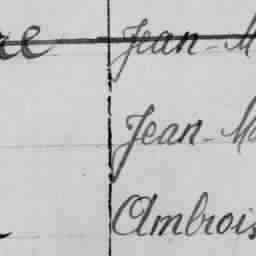 Jean-M
Jean-Ma
Ambrois